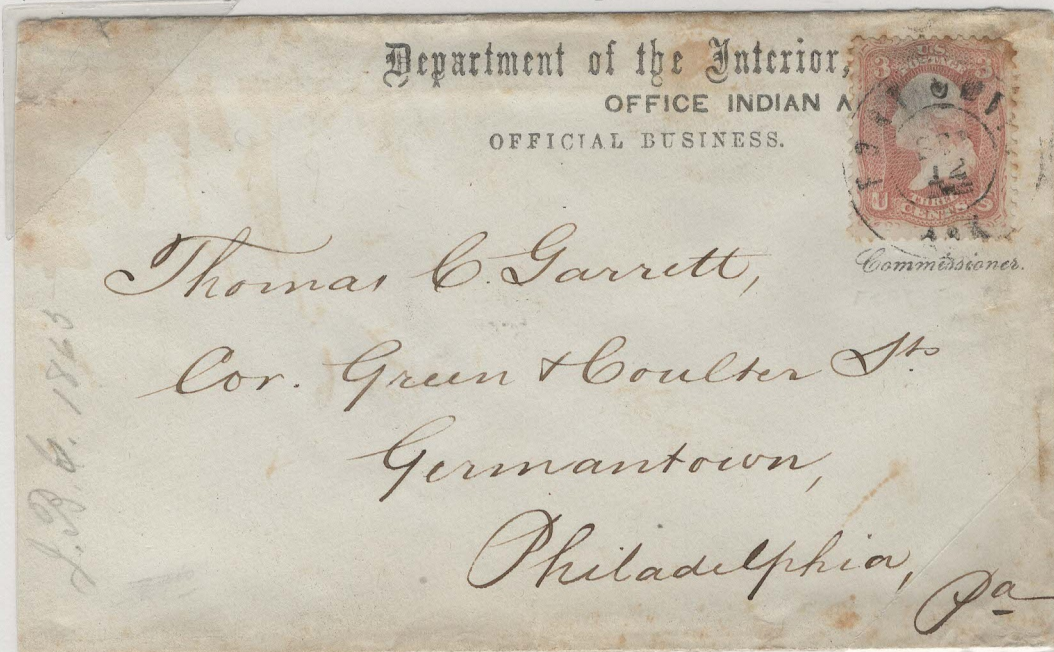 Department of the Interior,
OFFICE INDIAN A
OFFICIAL BUSINESS.
3 U.S. POSTAGE 3
U THREE CENTS S
12
ARK
Commissioner.
Thomas C. Garrett,
Cor. Green & Coulter Sts
Germantown,
Philadelphia,
Pa
J. B. G. 1865